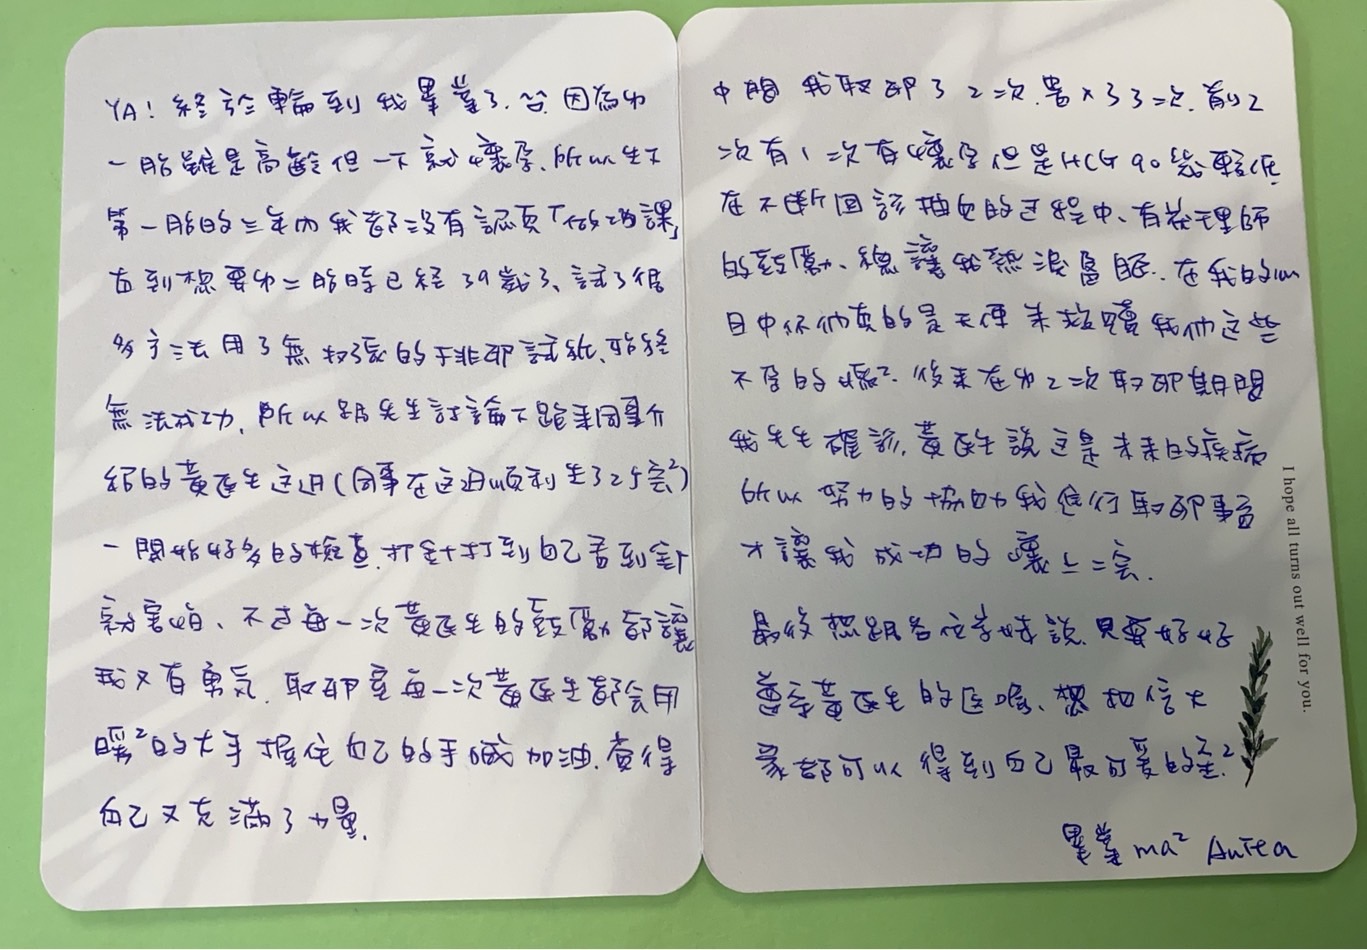 YA! 終於輪到我畢業了. 因為力
一胎雖是高齡但一下就懷孕、所以生下
第一胎的三年內我都沒有認真「做功課」
直到想要力二胎時已經39歲了、試了很
多方法用了無數張的于排卵試紙、始終
無法成功, 所以跟先生討論下跑來同事介
紹的黃医生这用(同事在这边順利生了2个宝²)
一開始好多的檢查.什至十打針自己看到針
就害怕、不过每一次黃医生的鼓勵都讓
我又有勇気. 取卵室每一次黃医生都会用
暖²的大手握住自己的手喊加油. 覺得
自己又充滿了力量.
中間我取卵了2次.植入了3次. 前2
次有1次有懷孕但是HCG 90幾較低
在不斷回診抽血的过程中、有护理師
的鼓勵、總讓我熱淚盈眶. 在我的心
目中你們真的是天使來拯救我們这些
不孕的媽². 後來在力2次取卵期間
我先生確診, 黃医生說这是未来的疾病
所以努力的協助我進行取卵事宜
才讓我成功的懷上二宝.
最後想跟各位孕妹說.只要好好
遵守黃医生的医嘱、想相信大
家都可以得到自己最可愛的宝²
畢業ma² Aufea
I hope all turns out well for you.